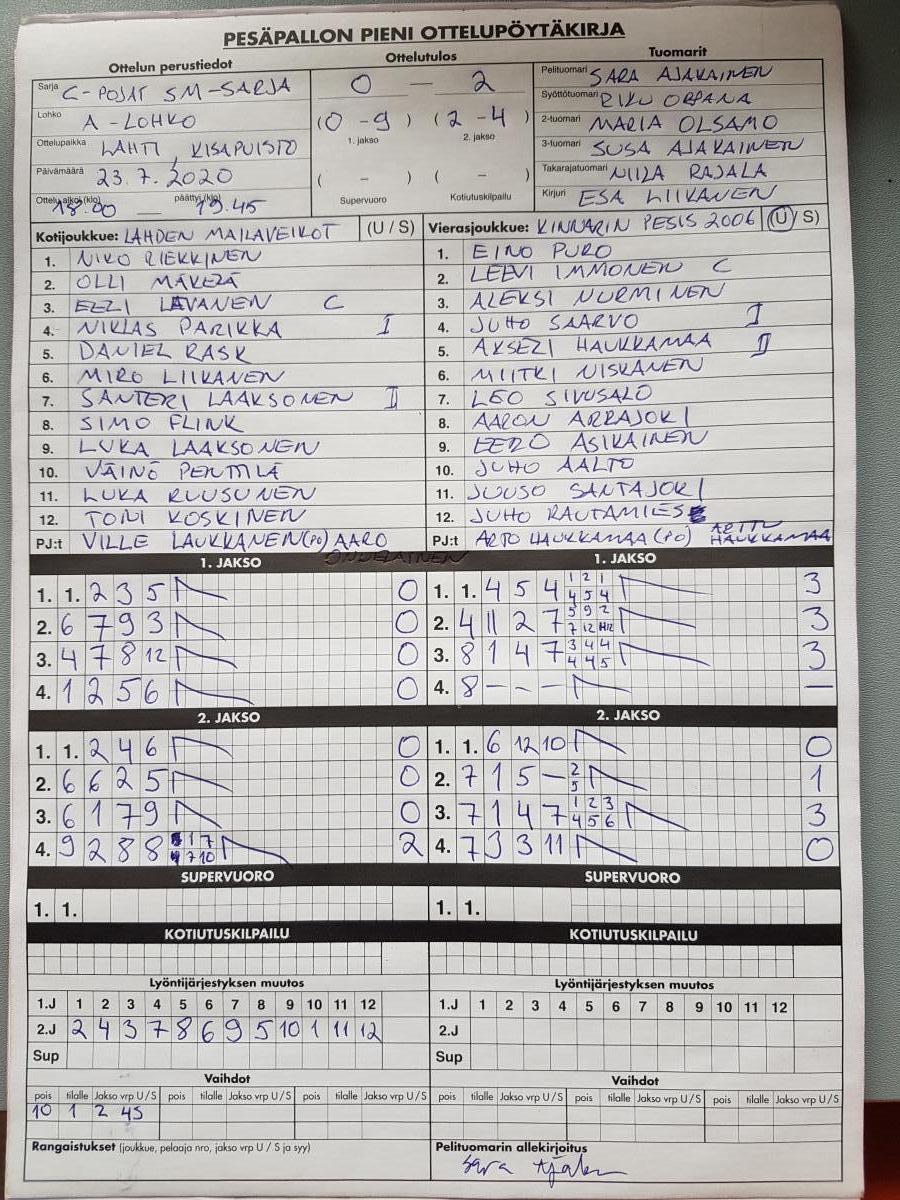 PESÄPALLON PIENI OTTELUPÖYTÄKIRJA
Ottelun perustiedot
Ottelutulos
Tuomarit
Sarja C-POJAT SM-SARJA
0 — 2
Pelituomari SARA AJAKAINEN
Lohko A-LOHKO
(0 - 9) (2 - 4)
1. jakso 2. jakso
Syöttötuomari RIKU ORPANA
2-tuomari MARIA OLSAMO
Ottelupaikka LAHTI, KISAPUISTO
3-tuomari SUSA AJAKAINEN
Päivämäärä 23.7.2020
( - ) ( - )
Supervuoro Kotiutuskilpailu
Takarajatuomari NIILA RAJALA
Ottelu alkoi (klo) 18.00 päättyi (klo) 19.45
Kirjuri ESA LIIKANEN
Kotijoukkue: LAHDEN MAILAVEIKOT (U / S)
Vierasjoukkue: KINNARIN PESIS 2006 (U / S)
1. NIKO RIEKKINEN
2. OLLI MÄKELÄ
3. EELI LAVANEN C
4. NIKLAS PARIKKA I
5. DANIEL RASK
6. MIRO LIIKANEN
7. SANTERI LAAKSONEN II
8. SIMO FLINK
9. LUKA LAAKSONEN
10. VÄINÖ PENTTILÄ
11. LUKA RUUSUNEN
12. TOMI KOSKINEN
PJ:t VILLE LAUKKANEN (PO) AARO
1. EINO PURO
2. LEEVI IMMONEN C
3. ALEKSI NURMINEN
4. JUHO SAARVO I
5. AKSELI HAUKKAMAA II
6. MIITKI NISKANEN
7. LEO SIVUSALO
8. AARON ARRAJOKI
9. EERO ASIKAINEN
10. JUHO AALTO
11. JUUSO SANTAJOKI
12. JUHO RAUTAMIES
PJ:t ARTO HAUKKAMAA (PO) ARTTU HAUKKAMAA
1. JAKSO
1. 1. 2 3 5 0
2. 6 7 9 3 0
3. 4 7 8 12 0
4. 1 2 5 6 0
1. JAKSO
1. 1. 4 5 4 1 2 1 3
4 5 4
2. 4 11 2 7 5 9 2 3
7 12
3. 8 1 4 7 3 4 4 3
4 4 5
4. 8 - - - —
2. JAKSO
1. 1. 2 4 6 0
2. 6 6 2 5 0
3. 6 1 7 9 0
4. 9 2 8 8 1 7 2
7 10
2. JAKSO
1. 1. 6 12 10 0
2. 7 1 5 — 2 1
5
3. 7 1 4 7 1 2 3 3
4 5 6
4. 7 3 3 11 0
SUPERVUORO
1. 1.
SUPERVUORO
1. 1.
KOTIUTUSKILPAILU
KOTIUTUSKILPAILU
Lyöntijärjestyksen muutos
1.J 1 2 3 4 5 6 7 8 9 10 11 12
2.J 2 4 3 7 8 6 9 5 10 1 11 12
Sup
Lyöntijärjestyksen muutos
1.J 1 2 3 4 5 6 7 8 9 10 11 12
2.J
Sup
Vaihdot
pois tilalle Jakso vrp U / S pois tilalle Jakso vrp U / S pois tilalle Jakso vrp U / S
10 1 2 4S
Vaihdot
pois tilalle Jakso vrp U / S pois tilalle Jakso vrp U / S pois tilalle Jakso vrp U / S
Rangaistukset (joukkue, pelaaja nro, jakso vrp U / S ja syy)
Pelituomarin allekirjoitus
Sara